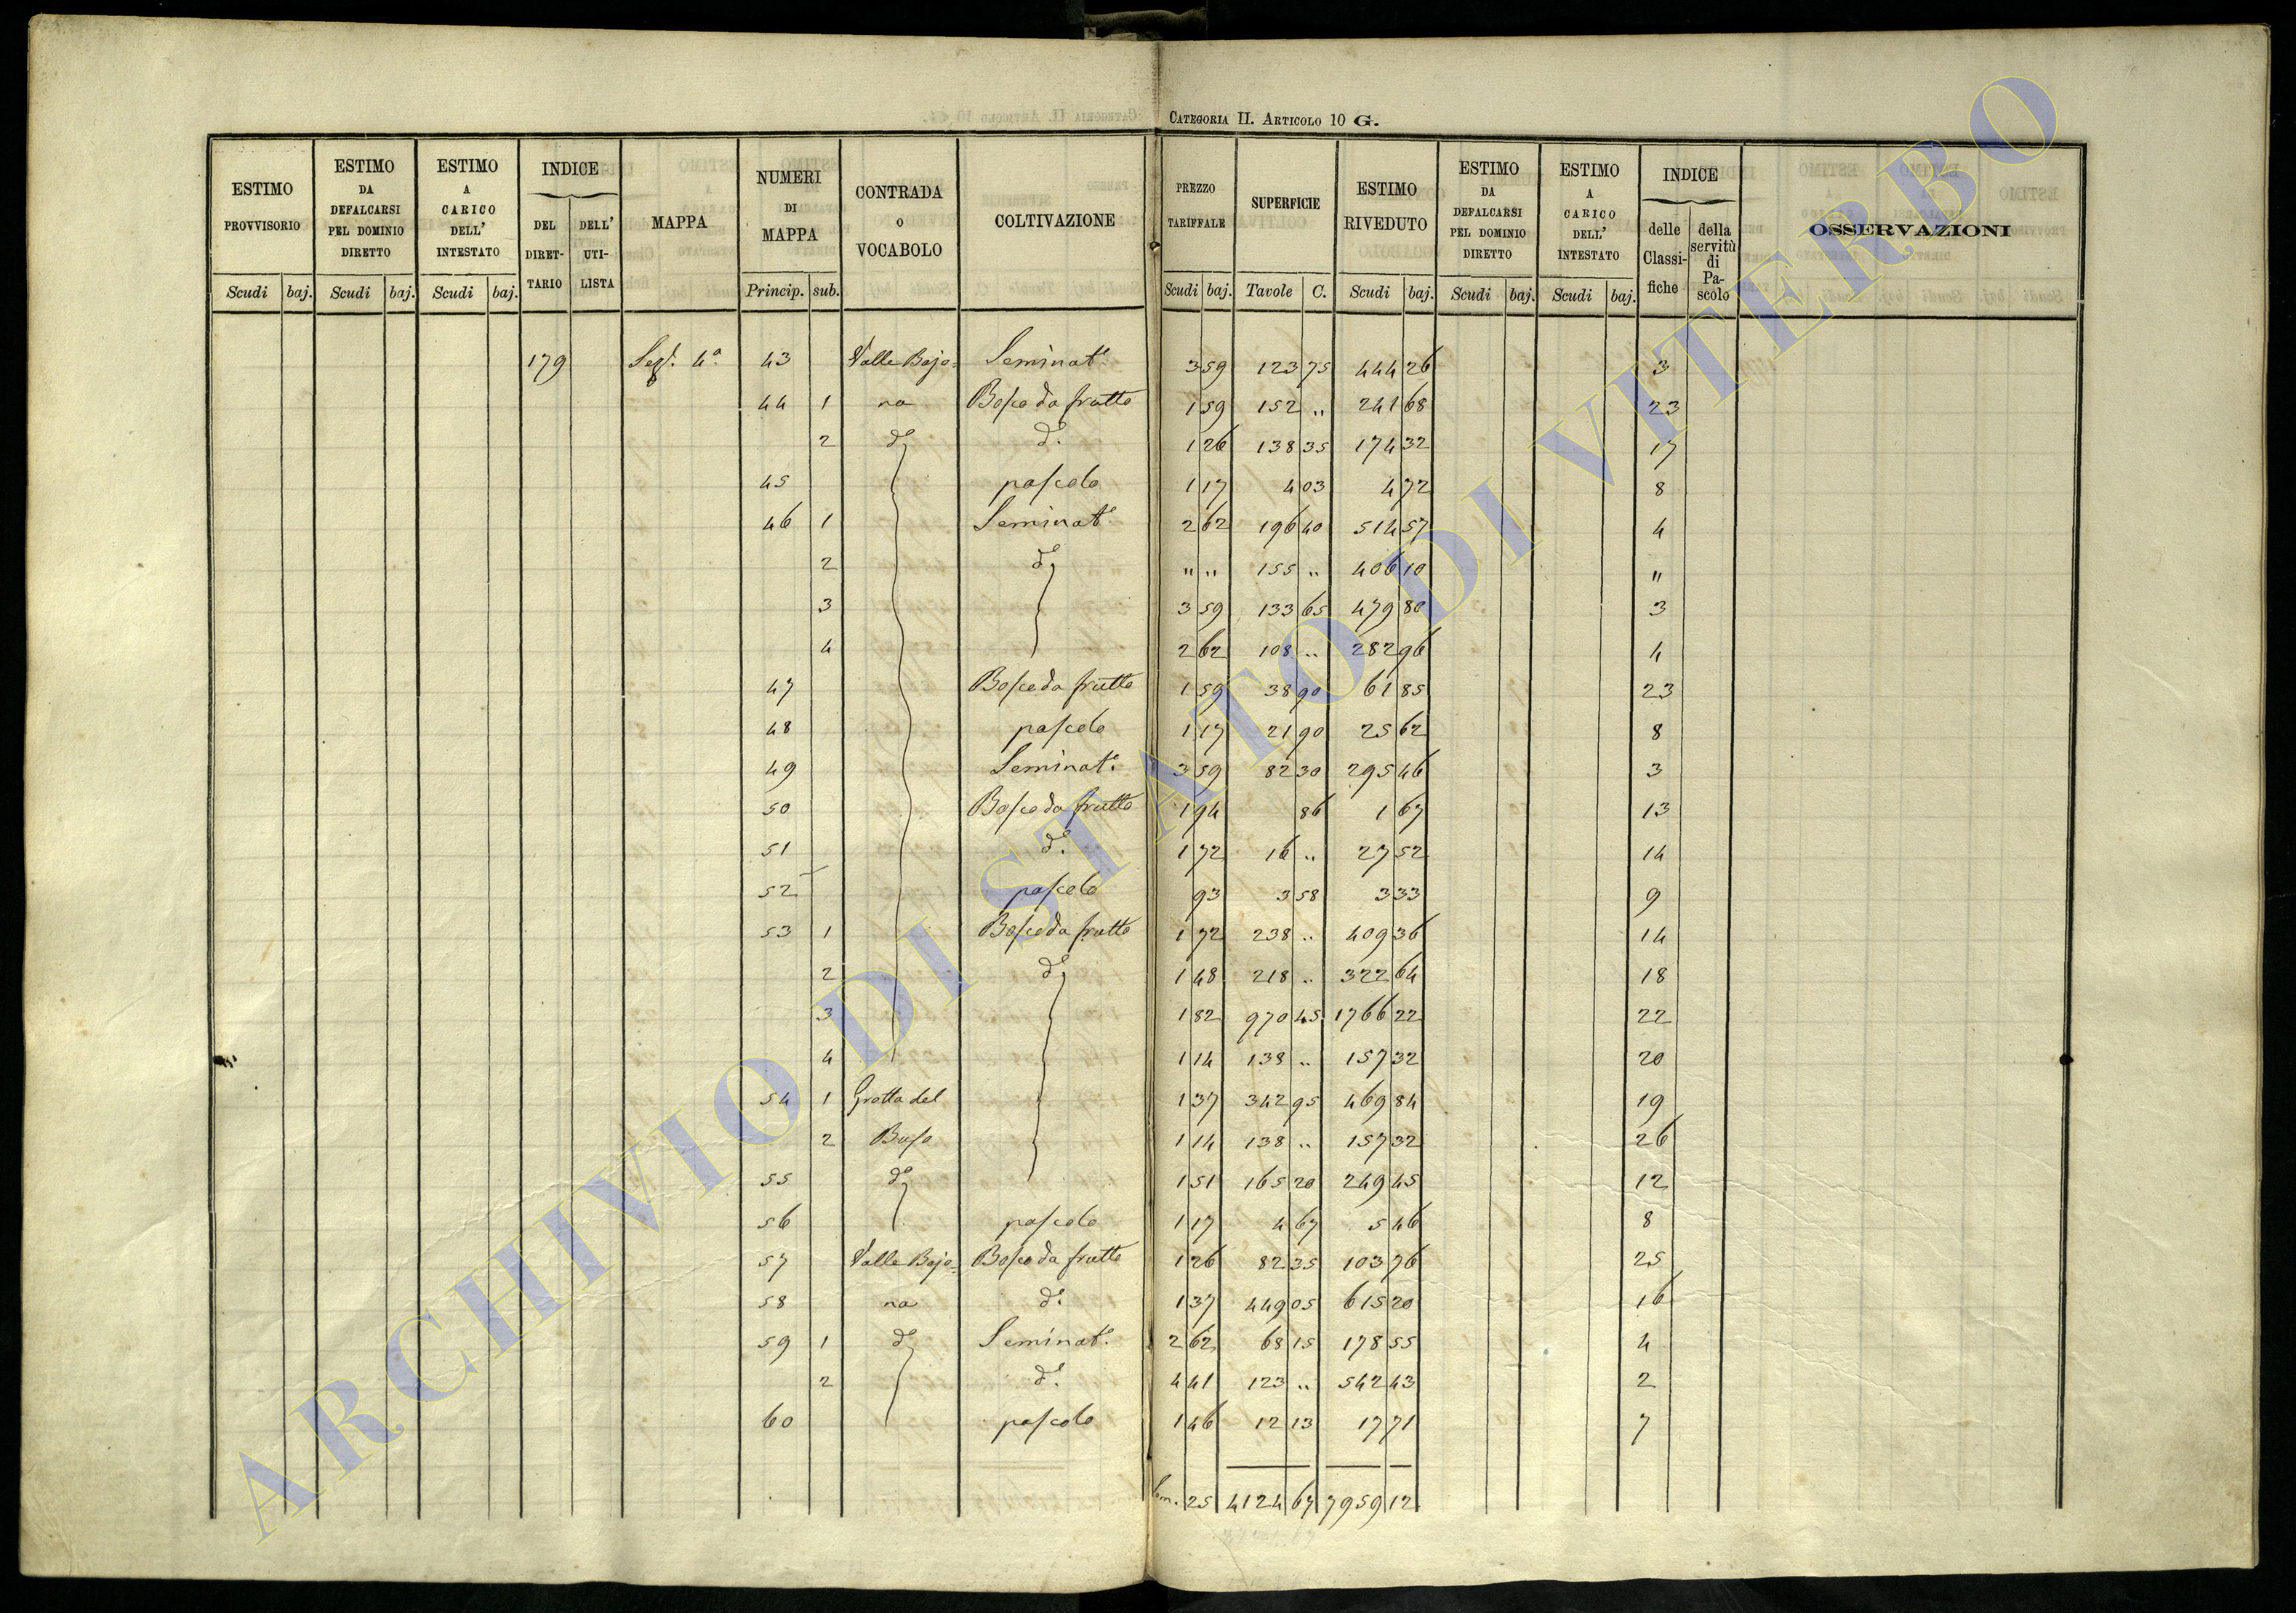 CATEGORIA II. ARTICOLO 10 G.
ESTIMO PROVVISORIO | ESTIMO DA DEFALCARSI PEL DOMINIO DIRETTO | ESTIMO A CARICO DELL' INTESTATO | INDICE DEL DIRETTARIO | DELL' UTILISTA | MAPPA | NUMERI DI MAPPA | CONTRADA O VOCABOLO | COLTIVAZIONE | PREZZO TARIFFALE | SUPERFICIE | ESTIMO RIVEDUTO | ESTIMO DA DEFALCARSI PEL DOMINIO DIRETTO | ESTIMO A CARICO DELL' INTESTATO | INDICE delle Classifiche | della servitù di Pascolo | OSSERVAZIONI
Scudi | baj. | Scudi | baj. | Scudi | baj. | Princip. | sub. | Scudi | baj. | Tavole | C. | Scudi | baj. | Scudi | baj. | Scudi | baj.
179 | Sez. 4ª | 43 | Valle Bajo= | Seminat.º | 3 59 | 123 75 | 444 26 | 3
44 | 1 | na | Bosco da frutto | 1 59 | 152 ,, | 241 68 | 23
2 | dº | dº | 1 26 | 138 35 | 174 32 | 17
45 | pascolo | 1 17 | 4 03 | 4 72 | 8
46 | 1 | Seminat.º | 2 62 | 196 40 | 514 57 | 4
2 | dº | ,, ,, | 155 ,, | 406 10 | ,,
3 | 3 59 | 133 65 | 479 80 | 3
4 | 2 62 | 108 ,, | 282 96 | 4
47 | Bosco da frutto | 1 59 | 38 90 | 61 85 | 23
48 | pascolo | 1 17 | 21 90 | 25 62 | 8
49 | Seminat.º | 3 59 | 82 30 | 295 46 | 3
50 | Bosco da frutto | 1 94 | 86 | 1 67 | 13
51 | dº | 1 72 | 16 ,, | 27 52 | 14
52 | pascolo | 93 | 3 58 | 3 33 | 9
53 | 1 | Bosco da frutto | 1 72 | 238 ,, | 409 36 | 14
2 | dº | 1 48 | 218 ,, | 322 64 | 18
3 | 1 82 | 970 45 | 1766 22 | 22
4 | 1 14 | 138 ,, | 157 32 | 20
54 | 1 | Grotta del | 1 37 | 342 95 | 469 84 | 19
2 | Bufo | 1 14 | 138 ,, | 157 32 | 26
55 | dº | 1 51 | 165 20 | 249 45 | 12
56 | pascolo | 1 17 | 4 67 | 5 46 | 8
57 | Valle Bajo= | Bosco da frutto | 1 26 | 82 35 | 103 76 | 25
58 | na | dº | 1 37 | 449 05 | 615 20 | 16
59 | 1 | dº | Seminat.º | 2 62 | 68 15 | 178 55 | 4
2 | dº | 4 41 | 123 ,, | 542 43 | 2
60 | pascolo | 1 46 | 12 13 | 17 71 | 7
25 | 4124 67 | 7959 12
ARCHIVIO DI STATO DI VITERBO